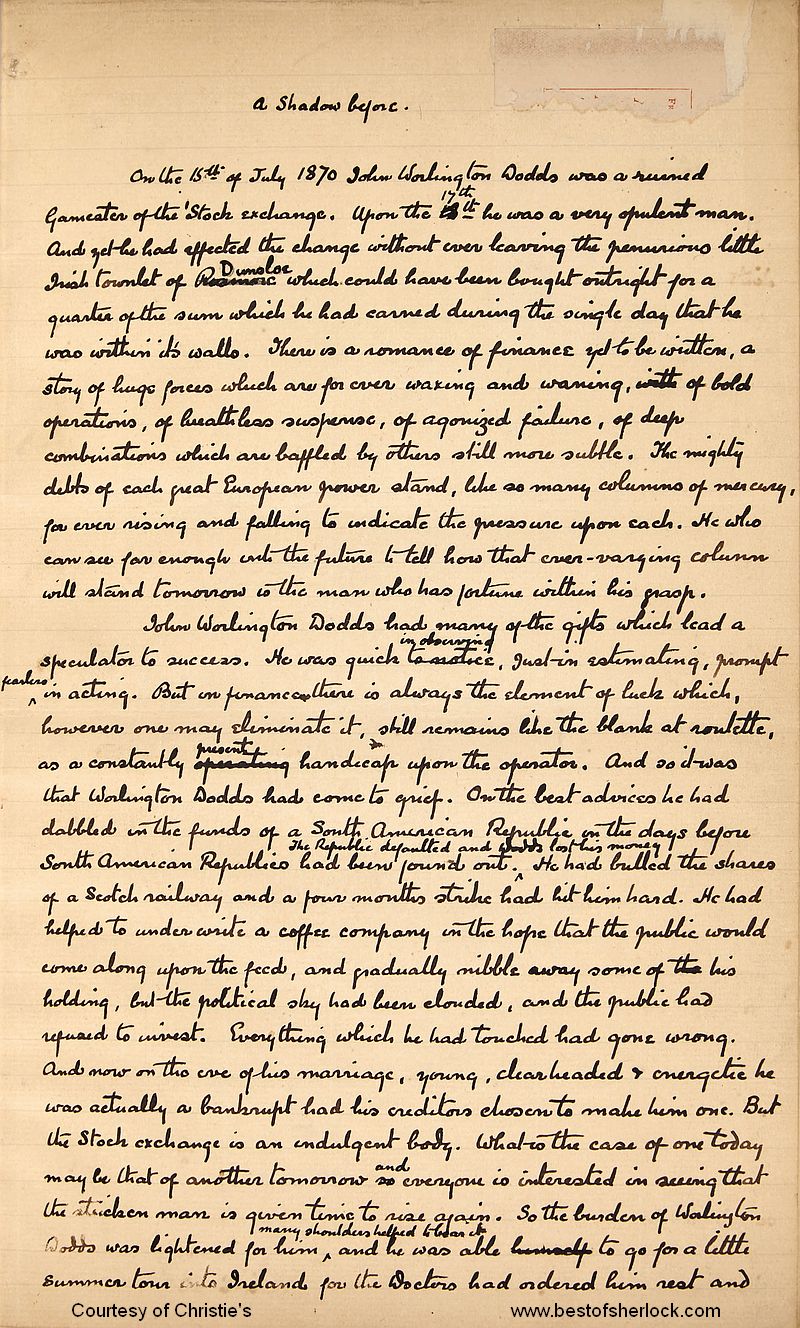 A Shadow before.
On the 15th of July 1870 John Worlington Dodds was a ruined
17th
Gamester of the Stock exchange. Upon the 18th he was a very opulent man.
And yet he had effected the change without ever leaving the penurious little
Dunsloe
Irish townlet of Rosmore which could have been bought outright for a
quarter of the sum which he had earned during the single day that he
was within it's walls. There is a romance of finance yet to be written, a
story of huge forces which are for ever waxing and waning, with of bold
operations, of breathless suspense, of agonized failure, of deep
combinations which are baffled by others still more subtle. The mighty
debts of each great European power stand, like so many columns of mercury,
for ever rising and falling to indicate the pressure upon each. He who
can see far enough into the future to tell how that ever-varying column
will stand tomorrow is the man who has fortune within his grasp.
John Worlington Dodds had many of the gifts which lead a
in observing
speculator to success. He was quick to notice, just in estimating, prompt
fearless
in acting. But in finance there is always the element of luck which,
however one may eliminate it, still remains like the blank at roulette,
present
as a constantly operating handicap upon the operator. And so it was
that Worlington Dodds had come to grief. On the best advices he had
dabbled in the funds of a South American Republic in the days before
The Republic defaulted and Dodds lost his money
South American Republics had been found out. He had bulled the shares
of a Scotch railway and a four months strike had hit him hard. He had
helped to underwrite a coffee company in the hope that the public would
come along upon the feed, and gradually nibble away some of the his
holding, but the political sky had been clouded, and the public had
refused to invest. Everything which he had touched had gone wrong.
And now on the eve of his marriage, young, clearheaded & energetic he
was actually a bankrupt had his creditors chosen to make him one. But
the Stock exchange is an indulgent body. What is the case of one today
and
may be that of another tomorrow so everyone is interested in seeing that
the stricken man is given time to rise again. So the burden of Worlington
many shoulders helped to bear it
Dodds was lightened for him, and he was able himself to go for a little
summer tour into Ireland for the Doctors had ordered him rest and
Courtesy of Christie's
www.bestofsherlock.com